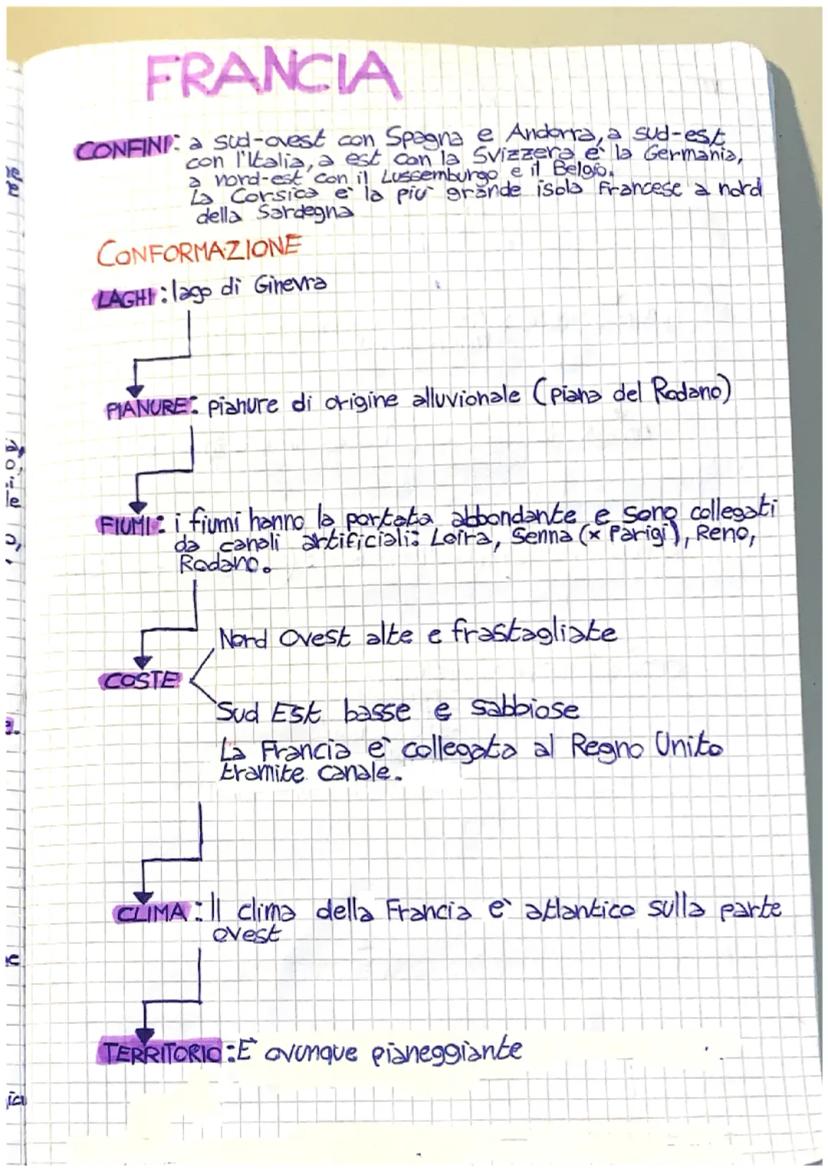 FRANCIA
CONFINI: a sud-ovest con Spagna e Andorra, a sud-est
con l'Italia, a est con la Svizzera e la Germania,
a nord-est con il Lussemburgo e il Belgio.
La Corsica e' la più grande isola Francese a nord
della Sardegna
CONFORMAZIONE
LAGHI: lago di Ginevra
PIANURE: pianure di origine alluvionale (piana del Rodano)
FIUMI: i fiumi hanno la portata abbondante e sono collegati
da canali artificiali: Loira, Senna (x Parigi), Reno,
Rodano.
Nord Ovest alte e frastagliate
COSTE
Sud Est basse e sabbiose
La Francia e' collegata al Regno Unito
tramite canale.
CLIMA: Il clima della Francia e' atlantico sulla parte
ovest
TERRITORIO: E' ovunque pianeggiante